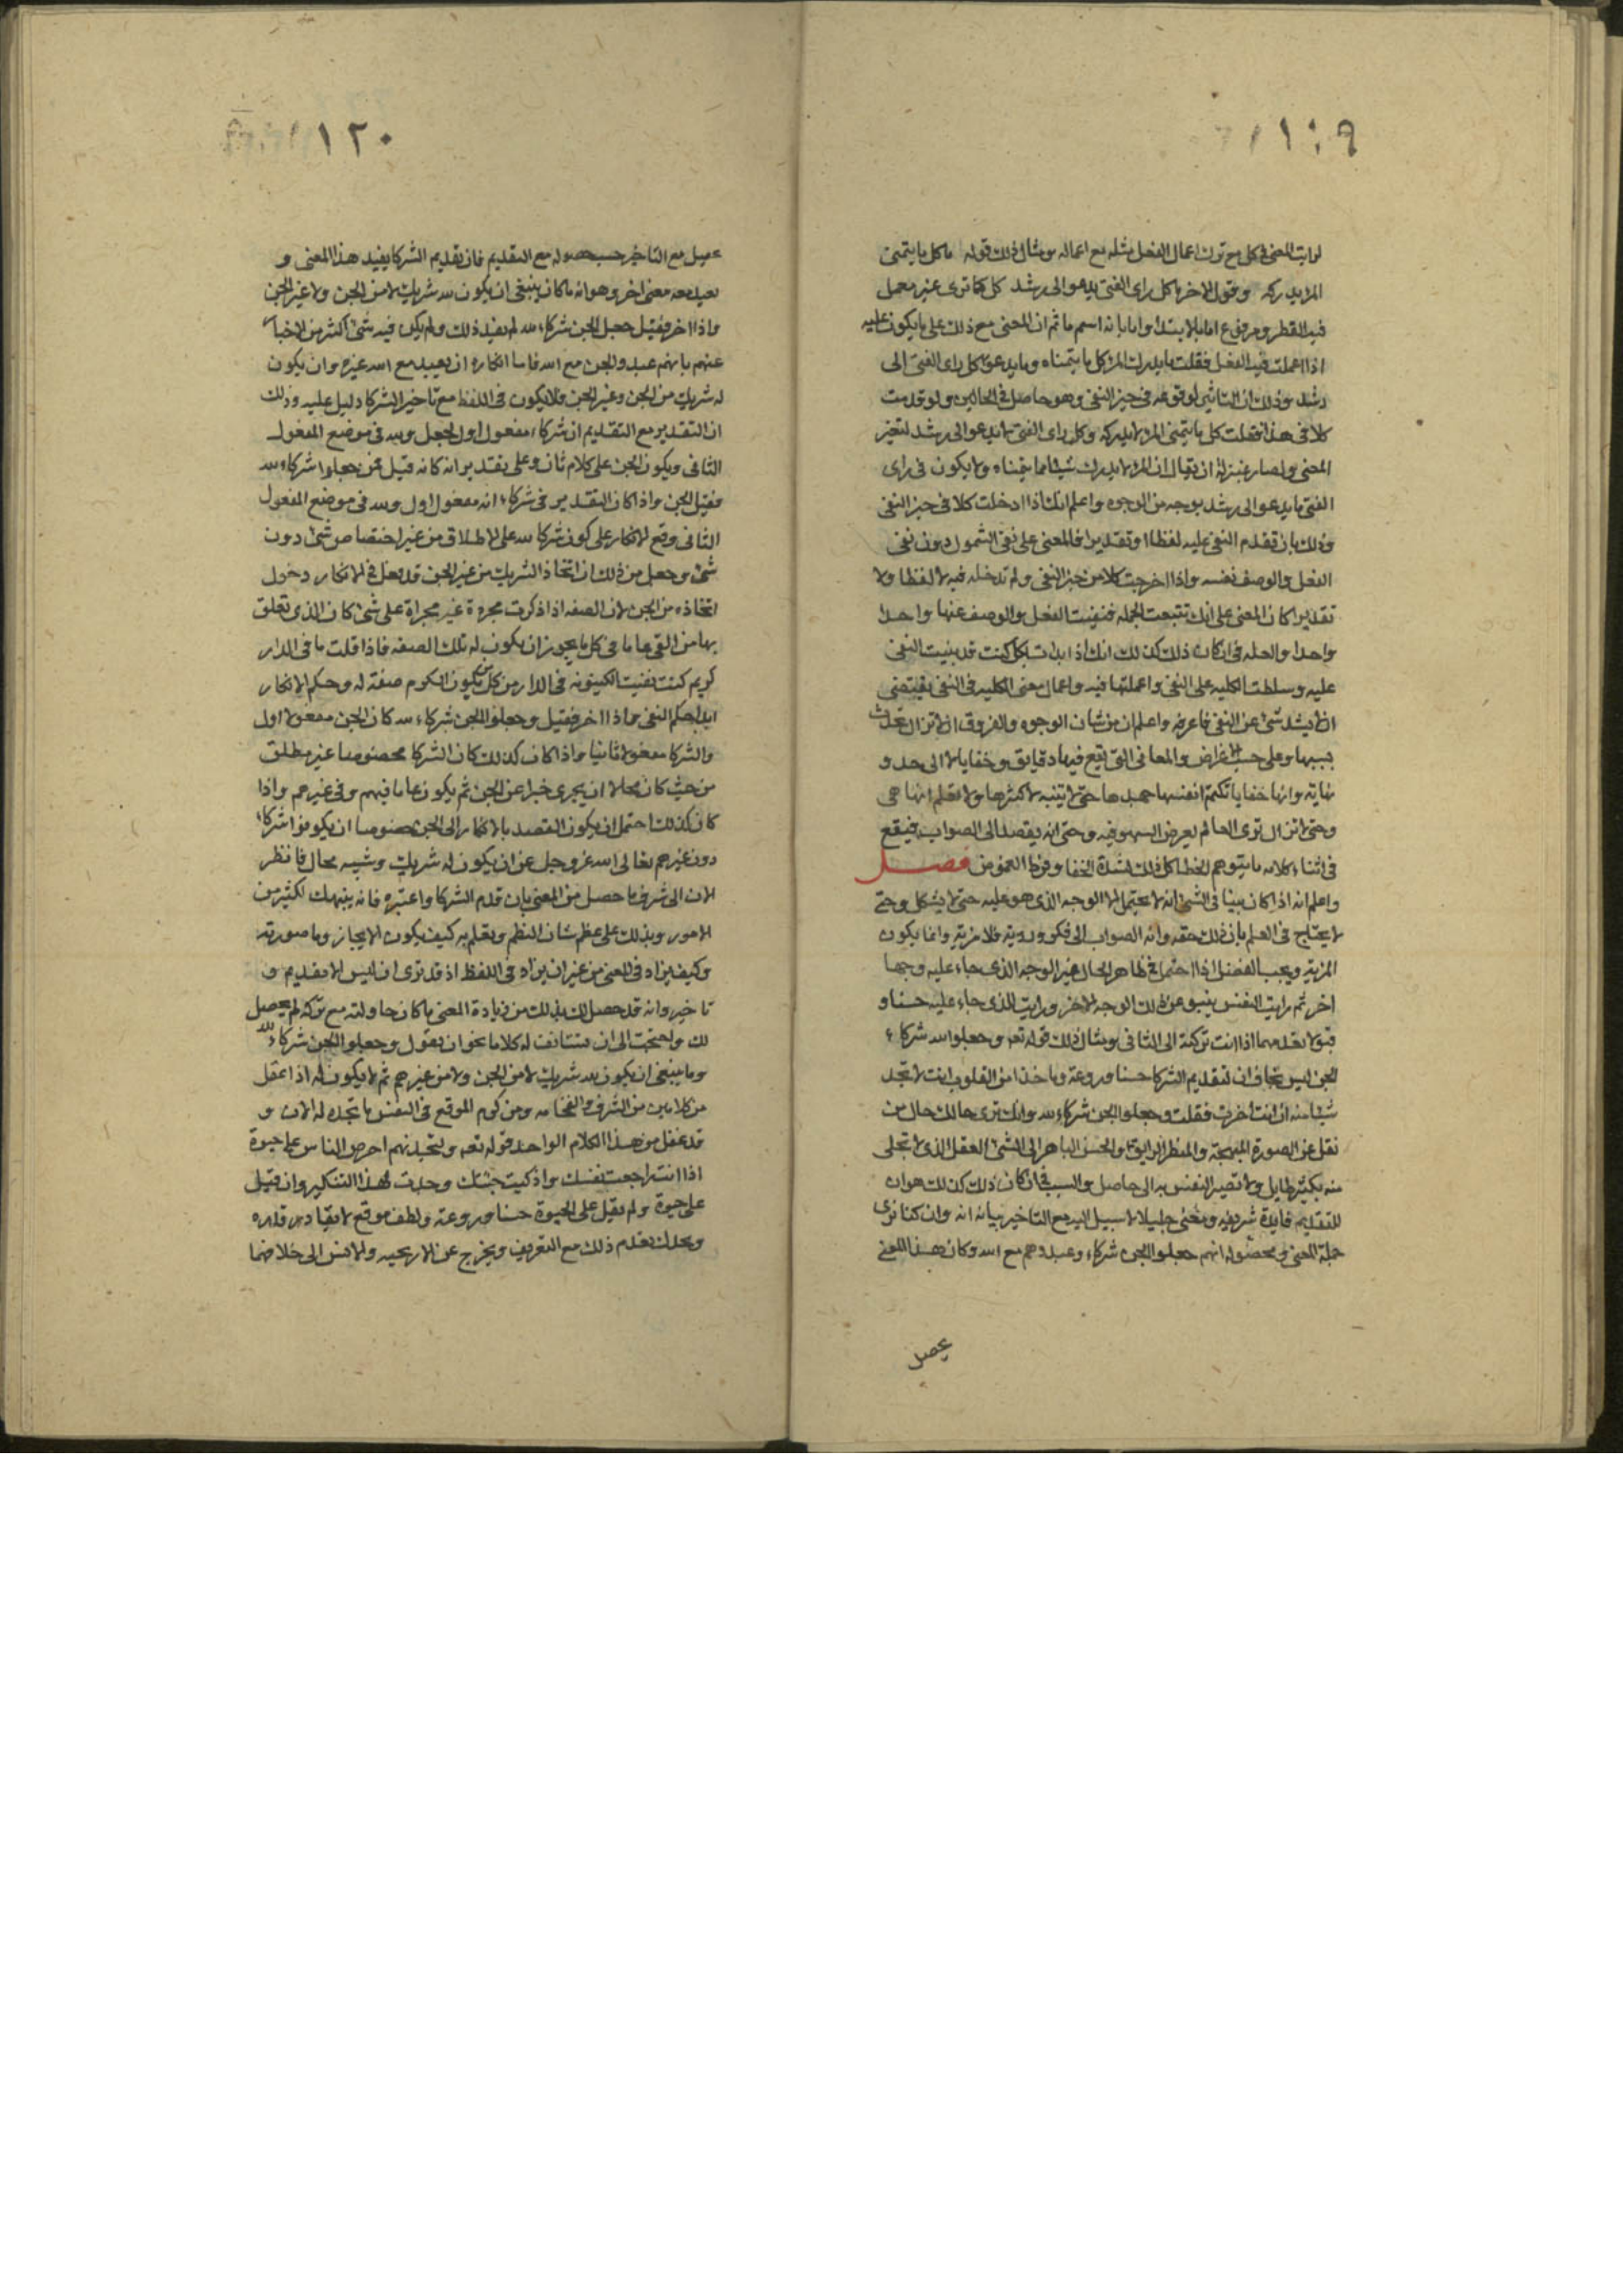 ١١٩
لرايت المعنى فى كل مع ترك اعمال الفعل مثله مع اعماله ومثال ذلك قوله ما كل ما يتمنى
المرء يدركه وقول الاخر ما كل راى الفتى يدعو الى رشد كل كما ترى غير معمل
فيه الفعل ومرفوع اما بالابتدا واما بانه اسم ما ثم ان المعنى مع ذلك على ما يكون عليه
اذا اعملت فيه الفعل فقلت ما يدرك المرء كل ما يتمناه وما يدعو كل راى الفتى الى
رشد وذلك ان التاثير لوقوعه فى حيز النفى وهو حاصل فى الحالين ولو قدمت
كلا فى هذا فقلت كل ما يتمنى المرء لا يدركه وكل راى الفتى لا يدعو الى رشد لتغير
المعنى ولصار بمنزلة ان يقال ان المرء لا يدرك شيئا مما يتمناه ولا يكون فى راى
الفتى ما يدعو الى رشد بوجه من الوجوه واعلم انك اذا ادخلت كلا فى حيز النفى
وذلك بان تقدم النفى عليه لفظا او تقديرا فالمعنى على نفى الشمول دون نفى
الفعل والوصف نفسه واذا اخرجت كلا من حيز النفى ولم تدخله فيه لا لفظا ولا
تقديرا كان المعنى على انك تتبعت الجمله فنفيت الفعل والوصف عنها واحدا
واحدا والعله فى ان كان ذلك كذلك انك اذا بدات بكل كنت قد بنيت النفى
عليه وسلطت الكليه على النفى واعملتها فيه واعمال معنى الكليه فى النفى يقتضى
ان لا يشذ شئ عن النفى فاعرفه واعلم ان من شان الوجوه والفروق ان لا تزال تحدث
بسببها وعلى حسب الاغراض والمعانى التى تقع فيها دقايق وخفايا لا الى حد و
نهاية وانها خفايا تكتم انفسها جهدها حتى لا يتنبه لاكثرها ولا تعلم انها هى
وحتى لا تزال ترى العالم يعرض السهو فيه وحتى انه يقصد الى الصواب فيقع
فى اثناء كلامه ما يتوهم الخطا كل ذلك لشدة الخفا وفرط الغموض فصل
واعلم انه اذا كان بينا فى الشئ انه لا يحتمل الا الوجه الذى هو عليه حتى لا يشكل وحتى
لا يحتاج فى العلم بان ذلك حقه وانه الصواب الى فكر وروية فلا مزية وانما يكون
المزية ويجب الفضل اذا احتمل فى ظاهر الحال غير الوجه الذى جاء عليه وجها
اخر ثم رايت النفس ينبو عن ذلك الوجه الاخر ورايت للذى جاء عليه حسنا و
قبولا يعدمهما اذا انت تركته الى الثانى ومثال ذلك قوله تعه وجعلوا لله شركاء
الجن ليس بخاف ان لتقديم الشركا حسنا وروعة وماخذا من القلوب انت لا تجد
شيئا منه ان انت اخرت فقلت وجعلوا الجن شركاء لله وانك ترى حالك حال من
نقل عن الصورة المبهجة والمنظر الرايق والحسن الباهر الى الشئ العقل الذى لا تحلى
منه بكثير طايل ولا تصير النفس به الى حاصل والسبب فى ان كان ذلك كذلك هو ان
للتقديم فايدة شريفه ومعنى جليلا لا سبيل اليه مع التاخير بيانه انه وان كنا نرى
جملة المعنى ومحصوله انهم جعلوا الجن شركاء وعبدوهم مع الله وكان هذا المعنى
يحصل
١٢٠
يحصل مع التاخير حسب حصوله مع التقديم فان تقديم الشركا يفيد هذا المعنى و
يفيد معه معنى اخر وهو انه ما كان ينبغى ان يكون لله شريك لا من الجن ولا غير الجن
واذا اخر فقيل جعل الجن شركاء لله لم يفد ذلك ولم يكن فيه شئ اكثر من الاخبار
عنهم بانهم عبدوا الجن مع الله فاما انكاره ان يعبد مع الله غيره وان يكون
له شريك من الجن وغير الجن فلا يكون فى اللفظ مع تاخير الشركا دليل عليه وذلك
ان التقدير مع التقديم ان شركاء مفعول اول لجعل ولله فى موضع المفعول
الثانى ويكون الجن على كلام ثان وعلى تقدير انه كانه قيل فمن جعلوا شركاء لله
فقيل الجن واذا كان التقدير فى شركاء انه مفعول اول ولله فى موضع المفعول
الثانى وقع الانكار على كون شركا لله على الاطلاق من غير اختصاص شئ دون
شئ وحصل من ذلك ان اتخاذ الشريك من غير الجن قد دخل فى الانكار دخول
اتخاذه من الجن لان الصفه اذا ذكرت مجردة غير مجراة على شئ كان الذى تعلق
بها من النفى عاما فى كل ما يجوز ان يكون له تلك الصفه فاذا قلت ما فى الدار
كريم كنت نفيت الكينونه فى الدار من كل من يكون الكرم صفة له وحكم الانكار
ابدا حكم النفى واذا اخر فقيل وجعلوا الجن شركاء لله كان الجن مفعولا اول
والشركا مفعولا ثانيا واذا كان كذلك كان الشركا مخصوصا غير مطلق
من حيث كان محالا ان يجرى خبرا عن الجن ثم يكون عاما فيهم وفى غيرهم واذا
كان كذلك احتمل ان يكون القصد بالانكار الى الجن خصوصا ان يكونوا شركاء
دون غيرهم تعالى الله عز وجل عن ان يكون له شريك وشبيه بحال فانظر
الان الى شرف ما حصل من المعنى بان قدم الشركا واعتبره فانه ينبهك لكثير من
الامور ويدلك على عظم شان النظم وتعلم به كيف يكون الايجاز وما صورته
وكيف يزاد فى المعنى من غير ان يزاد فى اللفظ اذ قد ترى ان ليس الا تقديم و
تاخير وانه قد حصل لك بذلك من زيادة المعنى ما كان حاولته مع تركه لم يحصل
لك ولاحتجت الى ان تستانف له كلاما نحو ان تقول وجعلوا الجن شركاء لله
وما ينبغى ان يكون لله شريك لا من الجن ولا من غيرهم ثم لا يكون له اذا عقل
من كلامين من الشرف والفخامه ومن كرم الموقع فى النفس ما تجده له الان و
قد عقل من هذا الكلام الواحد قوله تعه ولتجدنهم احرص الناس على حيوة
اذا انت راجعت نفسك واذكيت حسك وجدت لهذا التنكير وان قيل
على حيوة ولم يقل على الحيوة حسنا وروعة ولطف موقع لا يقادر قدره
وتجدك تعدم ذلك مع التعريف وتخرج عن الاريحيه والانس الى خلافهما